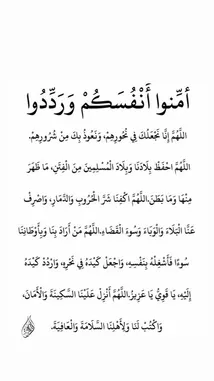 أمِّنوا أَنْفُسَكُمْ وَرَدِّدُوا
اللَّهُمَّ إِنَّا نَجْعَلُكَ فِي نُحُورِهِمْ، وَنَعُوذُ بِكَ مِنْ شُرُورِهِمْ.
اللَّهُمَّ احْفَظْ بِلَادَنَا وَبِلَادَ الْمُسْلِمِينَ مِنَ الْفِتَنِ، مَا ظَهَرَ
مِنْهَا وَمَا بَطَنَ.اللَّهُمَّ اكْفِنَا شَرَّ الْحُرُوبِ وَالدَّمَارِ، وَاصْرِفْ
عَنَّا الْبَلَاءَ وَالْوَبَاءَ وَسُوءَ الْقَضَاءِ.اللَّهُمَّ مَنْ أَرَادَ بِنَا وَبِأَوْطَانِنَا
سُوءًا فَأَشْغِلْهُ بِنَفْسِهِ، وَاجْعَلْ كَيْدَهُ فِي نَحْرِهِ، وَارْدُدْ كَيْدَهُ
إِلَيْهِ، يَا قَوِيُّ يَا عَزِيزُ.اللَّهُمَّ أَنْزِلْ عَلَيْنَا السَّكِينَةَ وَالْأَمَانَ،
وَاكْتُبْ لَنَا وَلِأَهْلِنَا السَّلَامَةَ وَالْعَافِيَةَ.